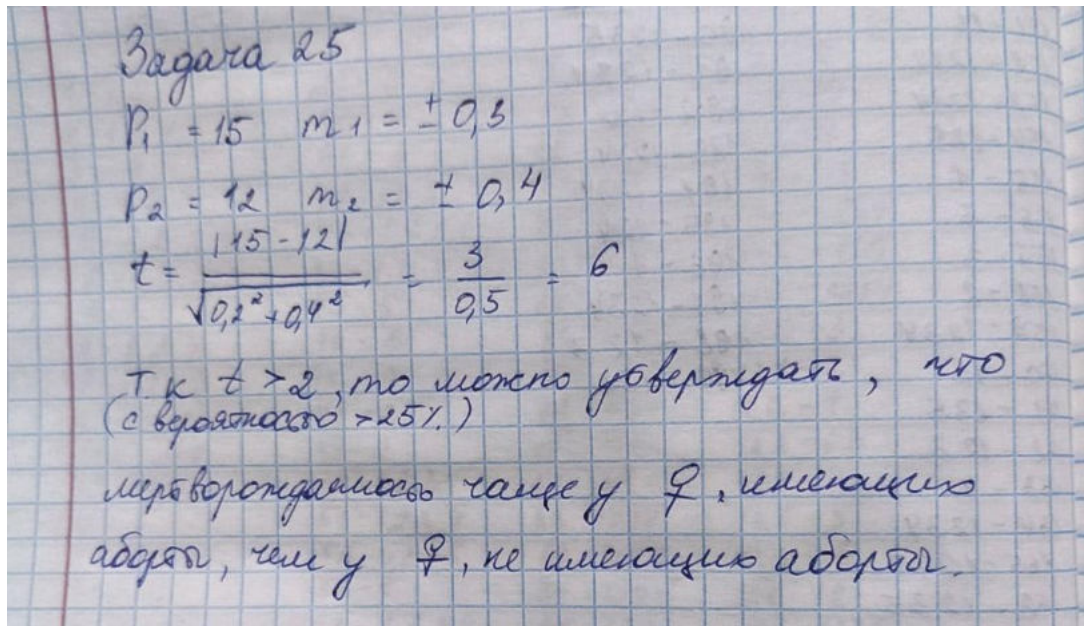 Задача 25
P₁ = 15 m₁ = ± 0,3
P₂ = 12 m₂ = ± 0,4
t = |15 - 12| / √0,2² + 0,4² = 3 / 0,5 = 6
Т к t > 2, то можно утверждать, что
(с вероятностью >25%)
мертворождаемость чаще у ♀, имеющих
аборты, чем у ♀, не имеющих аборты.